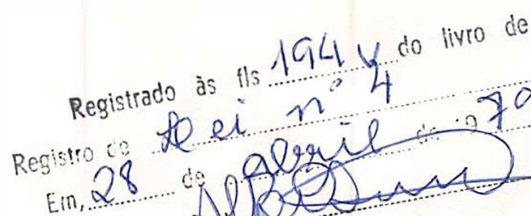 Registrado às fls 194 v do livro de
Registro de Lei nº 4
Em, 28 de abril de 19 79